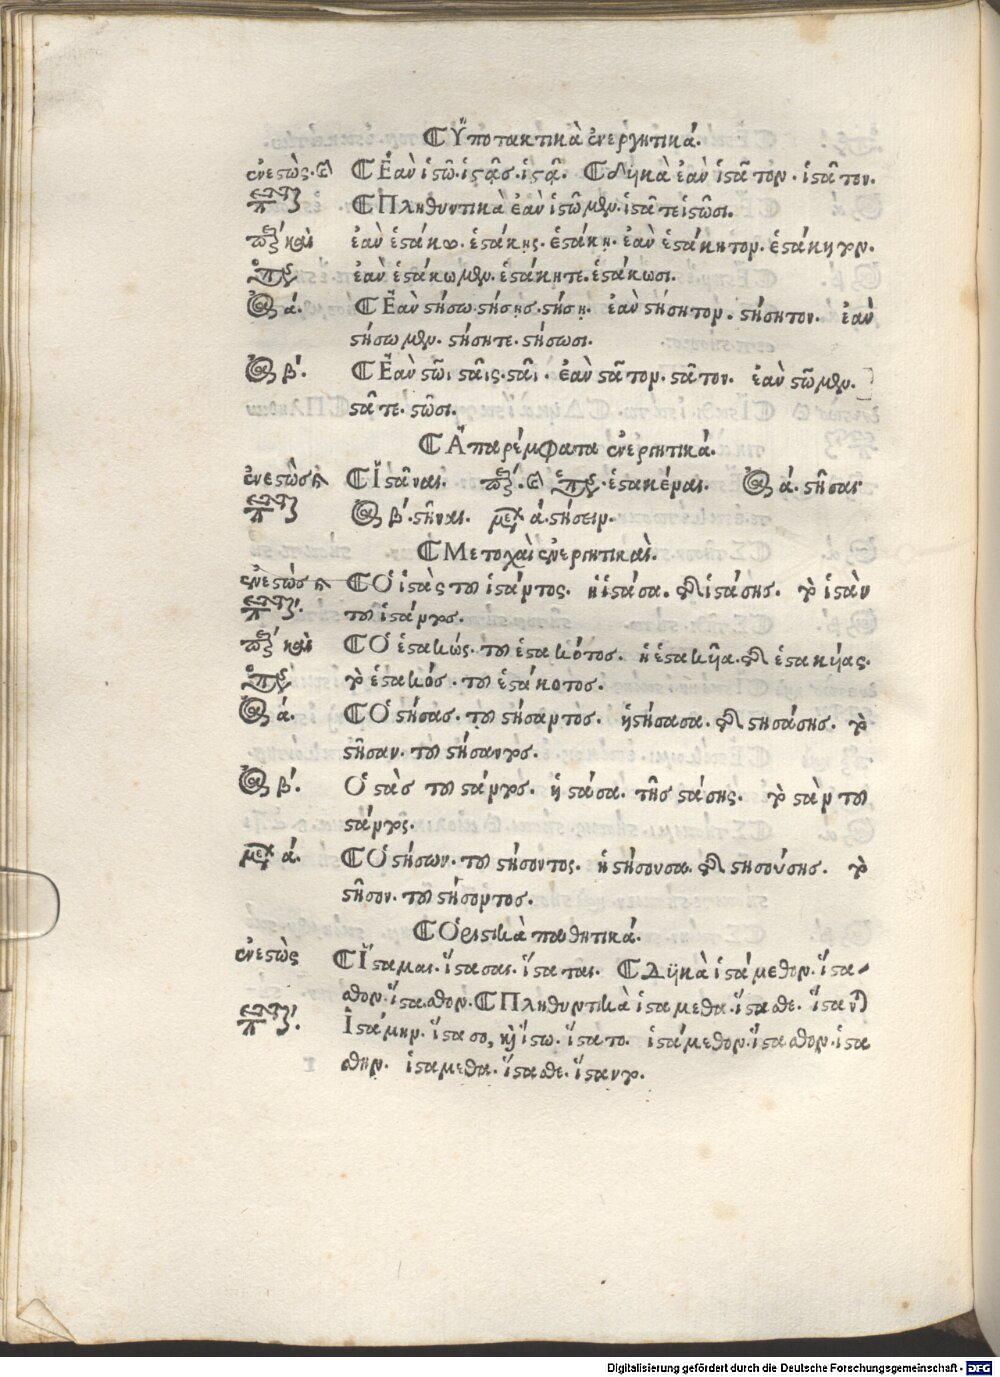 Ὑποτακτικὰ ἐνεργητικά.
ἐνεστὼς. Ἐὰν ἱστῶ. ἱστᾷς. ἱστᾷ. Δυϊκὰ ἐὰν ἱστᾶτον. ἱστᾶτον.
Πληθυντικὰ ἐὰν ἱστῶμεν. ἱστᾶτε ἱστῶσι.
καὶ ἐὰν ἑστάκω. ἑστάκῃς. ἑστάκῃ. ἐὰν ἑστάκητον. ἑστάκητον.
ἐὰν ἑστάκωμεν. ἑστάκητε. ἑστάκωσι.
ά. Ἐὰν στήσω. στήσῃς. στήσῃ. ἐὰν στήσητον. στήσητον. ἐὰν
στήσωμεν. στήσητε. στήσωσι.
β΄. Ἐὰν στῶ. στᾷς. στᾷ. ἐὰν στᾶτον. στᾶτον. ἐὰν στῶμεν.
στᾶτε. στῶσι.
Ἀπαρέμφατα ἐνεργητικά.
ἐνεστὼς Ἱστάναι. ἑστακέναι. ά. στῆσαι
β΄. στῆναι. ά. στήσειν.
Μετοχαὶ ἐνεργητικαί.
ἐνεστὼς Ὁ ἱστὰς τοῦ ἱστάντος. ἡ ἱστάσα. τῆς ἱστάσης. τὸ ἱστὰν
τοῦ ἱστάντος.
καὶ Ὁ ἑστακώς. τοῦ ἑστακότος. ἡ ἑστακῦα. τῆς ἑστακύας.
τὸ ἑστακός. τοῦ ἑστάκοτος.
ά. Ὁ στήσας. τοῦ στήσαντος. ἡ στήσασα. τῆς στησάσης. τὸ
στῆσαν. τοῦ στήσαντος.
β΄. Ὁ στὰς τοῦ στάντος. ἡ στάσα. τῆς στάσης. τὸ στὰν τοῦ
στάντος.
ά. Ὁ στήσων. τοῦ στήσοντος. ἡ στήσουσα. τῆς στησούσης. τὸ
στῆσον. τοῦ στήσοντος.
Ὁριστικὰ παθητικά.
ἐνεστὼς Ἵσταμαι. ἵστασαι. ἵσταται. Δυϊκὰ ἱστάμεθον. ἵστα-
σθον. ἵστασθον. Πληθυντικὰ ἱστάμεθα. ἵστασθε. ἵστανται
Ἱστάμην. ἵστασο, καὶ ἵστω. ἵστατο. ἱστάμεθον. ἵστασθον. ἱστά
σθην. ἱστάμεθα. ἵστασθε. ἵσταντο.
Digitalisierung gefördert durch die Deutsche Forschungsgemeinschaft - DFG